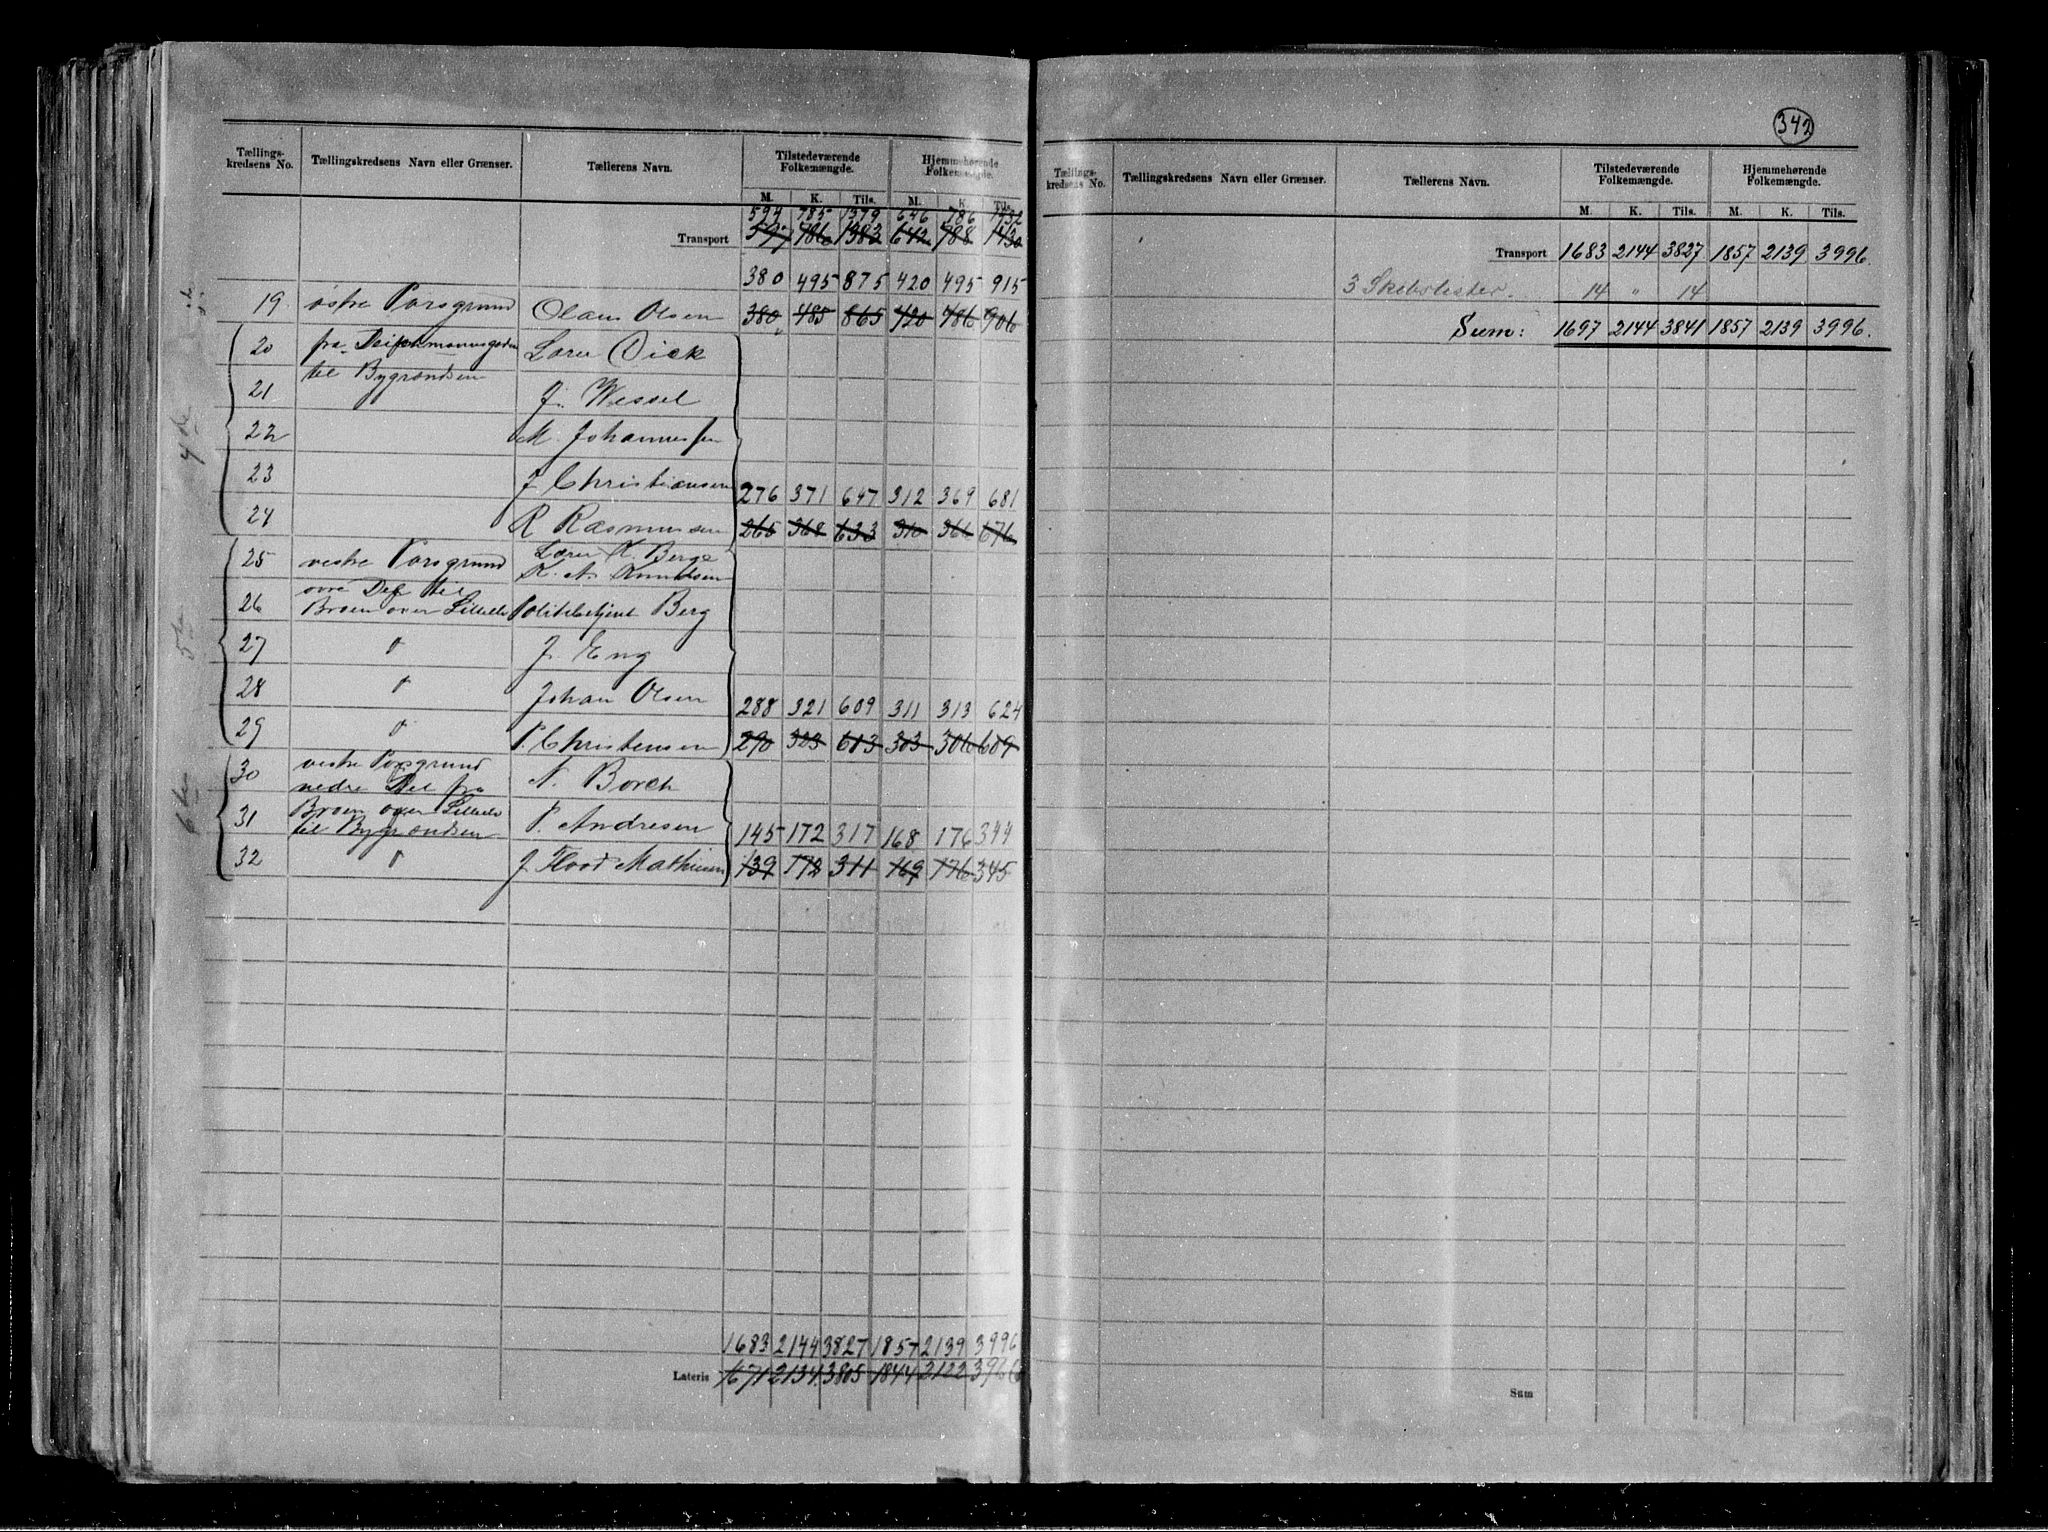 342
Tællings-kredsens No. Tællingskredsens Navn eller Grænser. Tællerens Navn. Tilstedeværende Folkemængde. Hjemmehørende Folkemængde.
M. K. Tils. M. K. Tils.
594 785 1379 646 786 1432
Transport 597 786 1383 642 788 1430
380 495 875 420 495 915
19. østre Porsgrund Olaus Olsen 380 485 865 420 486 906
20 fra Deichmannsgaden Lærer Dick
til Bygrændsen
21 J. Wessel
22 M. Johannessen
23 J Christiansen 276 371 647 312 369 681
24 R Rasmussen 265 368 633 310 366 676
4de
25 vestre Porsgrund Lærer K. Berge
K. A. Knudsen
øvre Del til
26 Broen over Lilleelv Politibetjent Berg
27 " J. Eng
28 " Johan Olsen 288 321 609 311 313 624
29 " P. Christensen 290 323 613 303 306 609
5te
30 vestre Porsgrund N. Borch
nedre Del fra
31 Broen over Lilleelv P. Andresen 145 172 317 168 176 344
til Bygrændsen
32 " J Flood Mathiesen 139 172 311 169 176 345
6te
1683 2144 3827 1857 2139 3996
Lateris 1671 2134 3805 1844 2122 3966
Tællings-kredsens No. Tællingskredsens Navn eller Grænser. Tællerens Navn. Tilstedeværende Folkemængde. Hjemmehørende Folkemængde.
M. K. Tils. M. K. Tils.
Transport 1683 2144 3827 1857 2139 3996.
3 Skibslister. 14 " 14
Sum: 1697 2144 3841 1857 2139 3996.
Sum